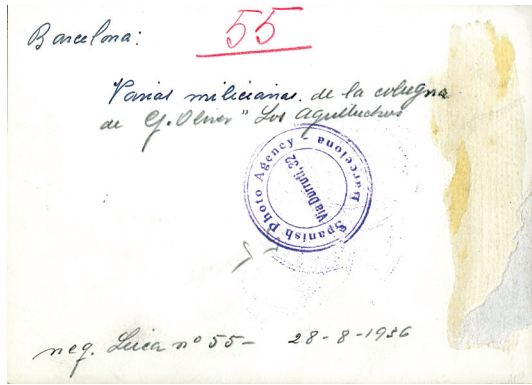 Barcelona:
55
Varias milicianas. de la columna
de G. Oliver "Los Aguiluchos
Spanish Photo Agency - Barcelona
Via Durruti, 32
neg. Leica nº 55 - 28-8-1936